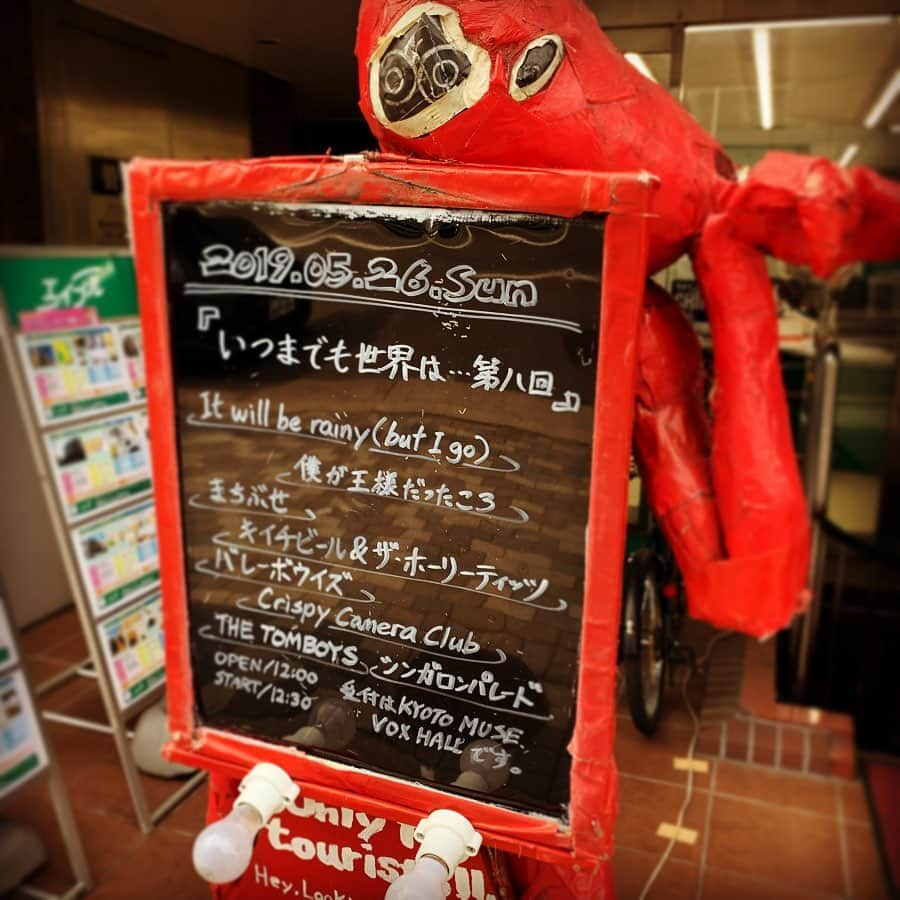 2019.05.26.Sun
『いつまでも世界は…第八回』
It will be rainy(but I go)
僕が王様だったころ
まちぶせ
キイチビール&ザ・ホーリーティッツ
バレーボウイズ
Crispy Camera Club
THE TOMBOYS
シンガロンパレード
OPEN/12:00
START/12:30
受付はKYOTO MUSE
VOX HALL です。
Only
tourist
Hey, Look
エイブル